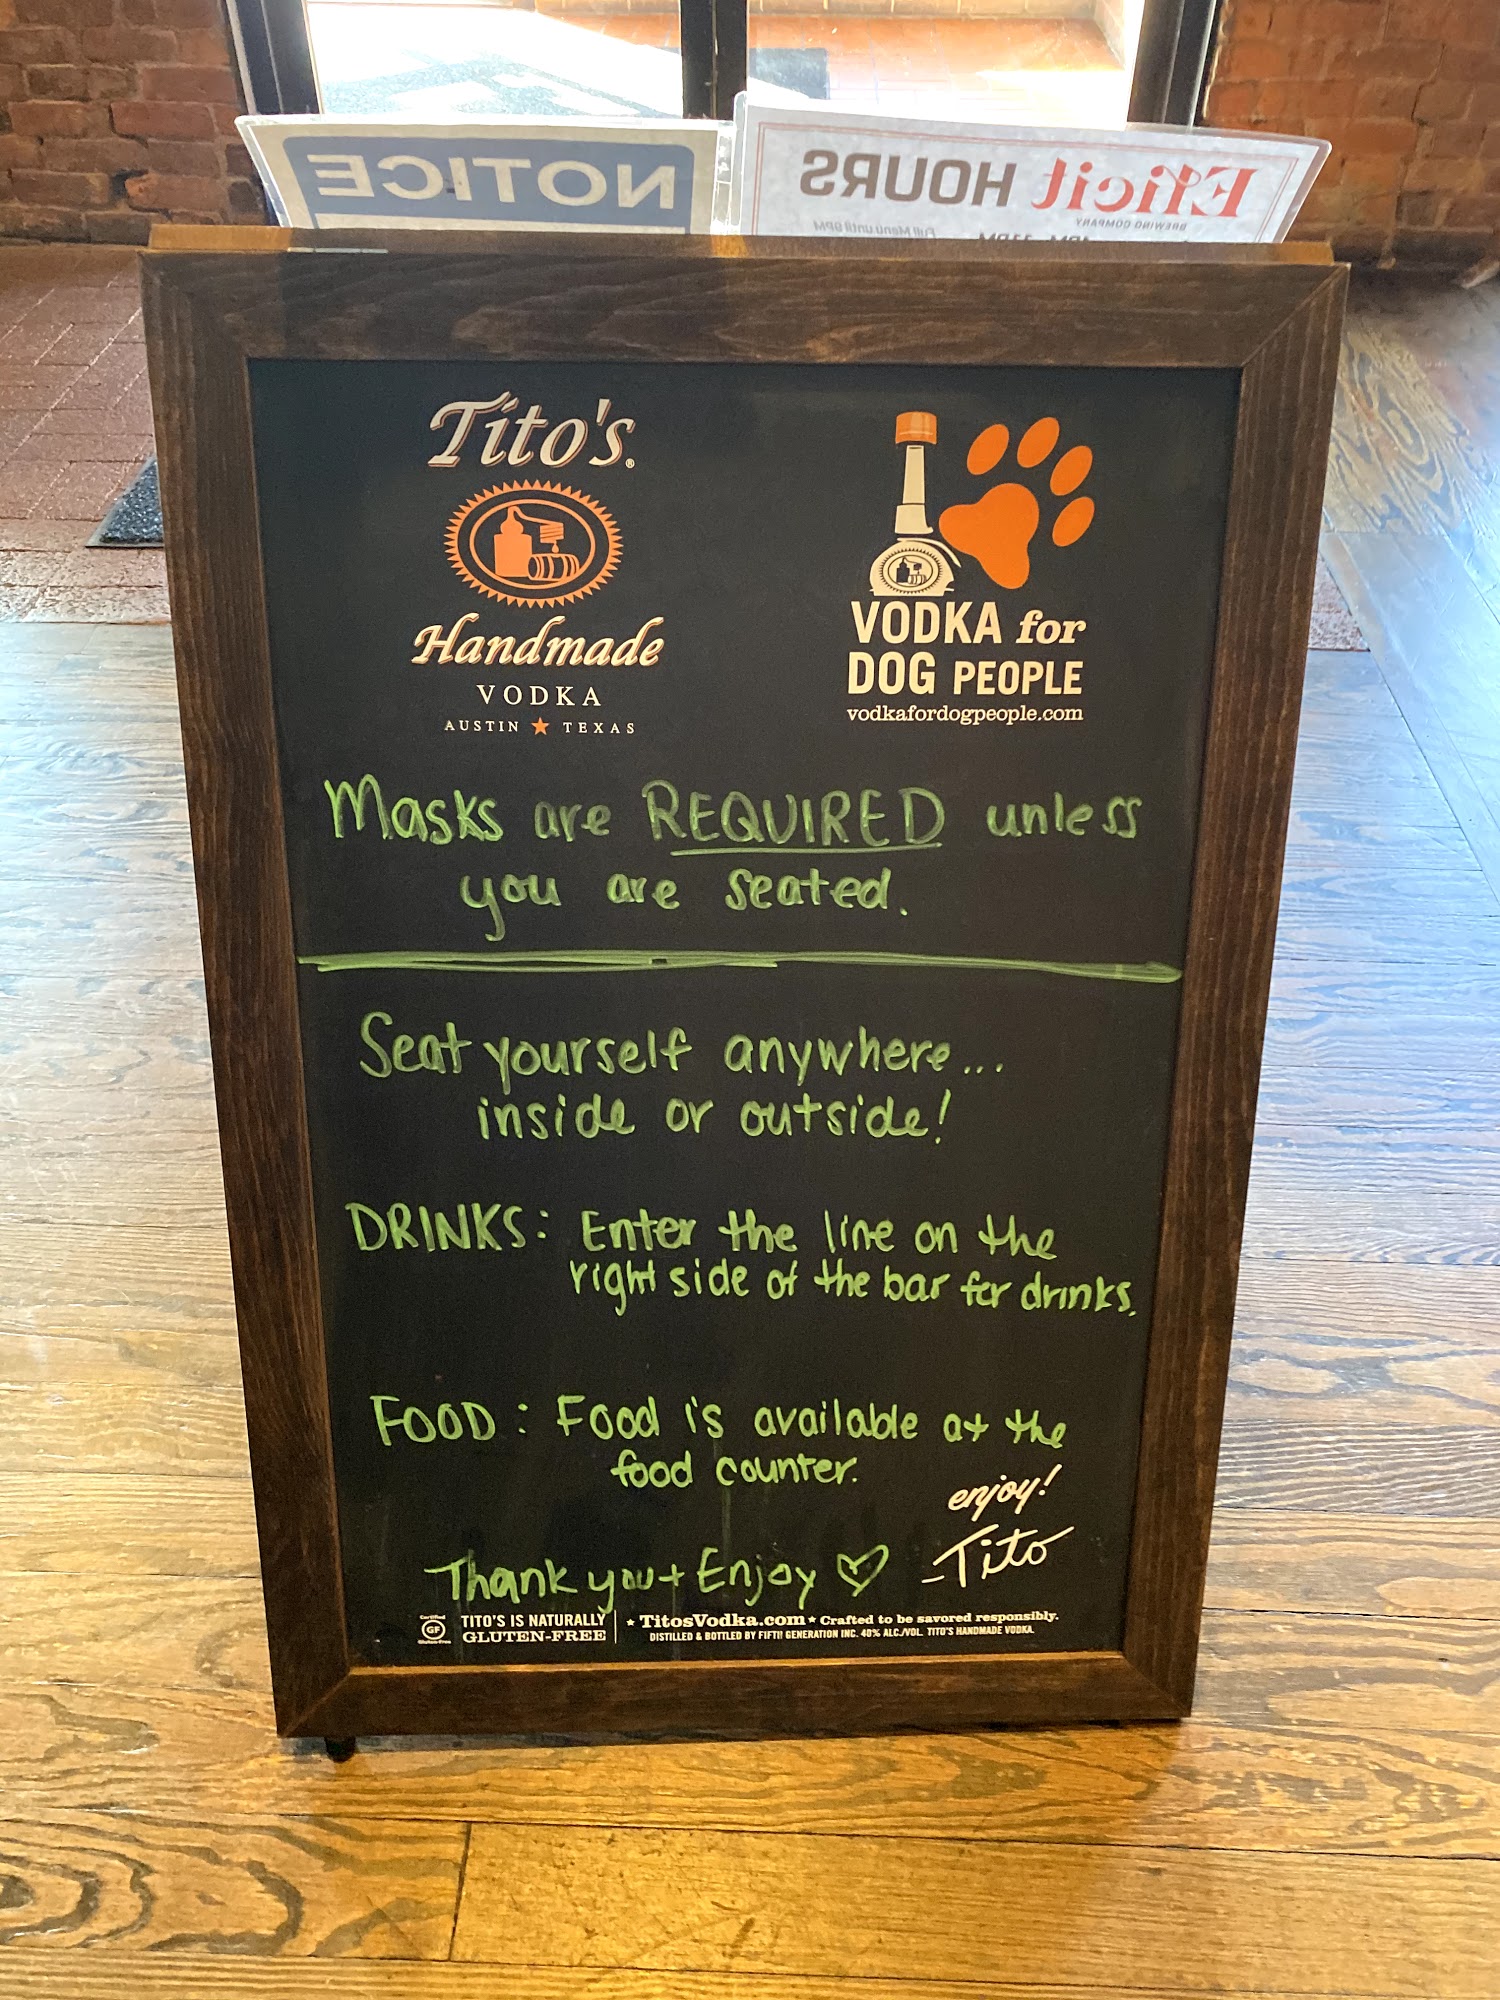 NOTICE
Elicit HOURS
BREWING COMPANY
Full Menu until 9PM
Tito's®
Handmade
VODKA
AUSTIN ★ TEXAS
VODKA for
DOG PEOPLE
vodkafordogpeople.com
Masks are REQUIRED unless
you are seated.
Seat yourself anywhere...
inside or outside!
DRINKS: Enter the line on the
right side of the bar for drinks.
FOOD: Food is available at the
food counter.
enjoy!
-Tito
Thank you + Enjoy ♡
Certified
GF
Gluten-Free
TITO'S IS NATURALLY
GLUTEN-FREE
★ TitosVodka.com ★ Crafted to be savored responsibly.
DISTILLED & BOTTLED BY FIFTH GENERATION INC. 40% ALC./VOL. TITO'S HANDMADE VODKA.